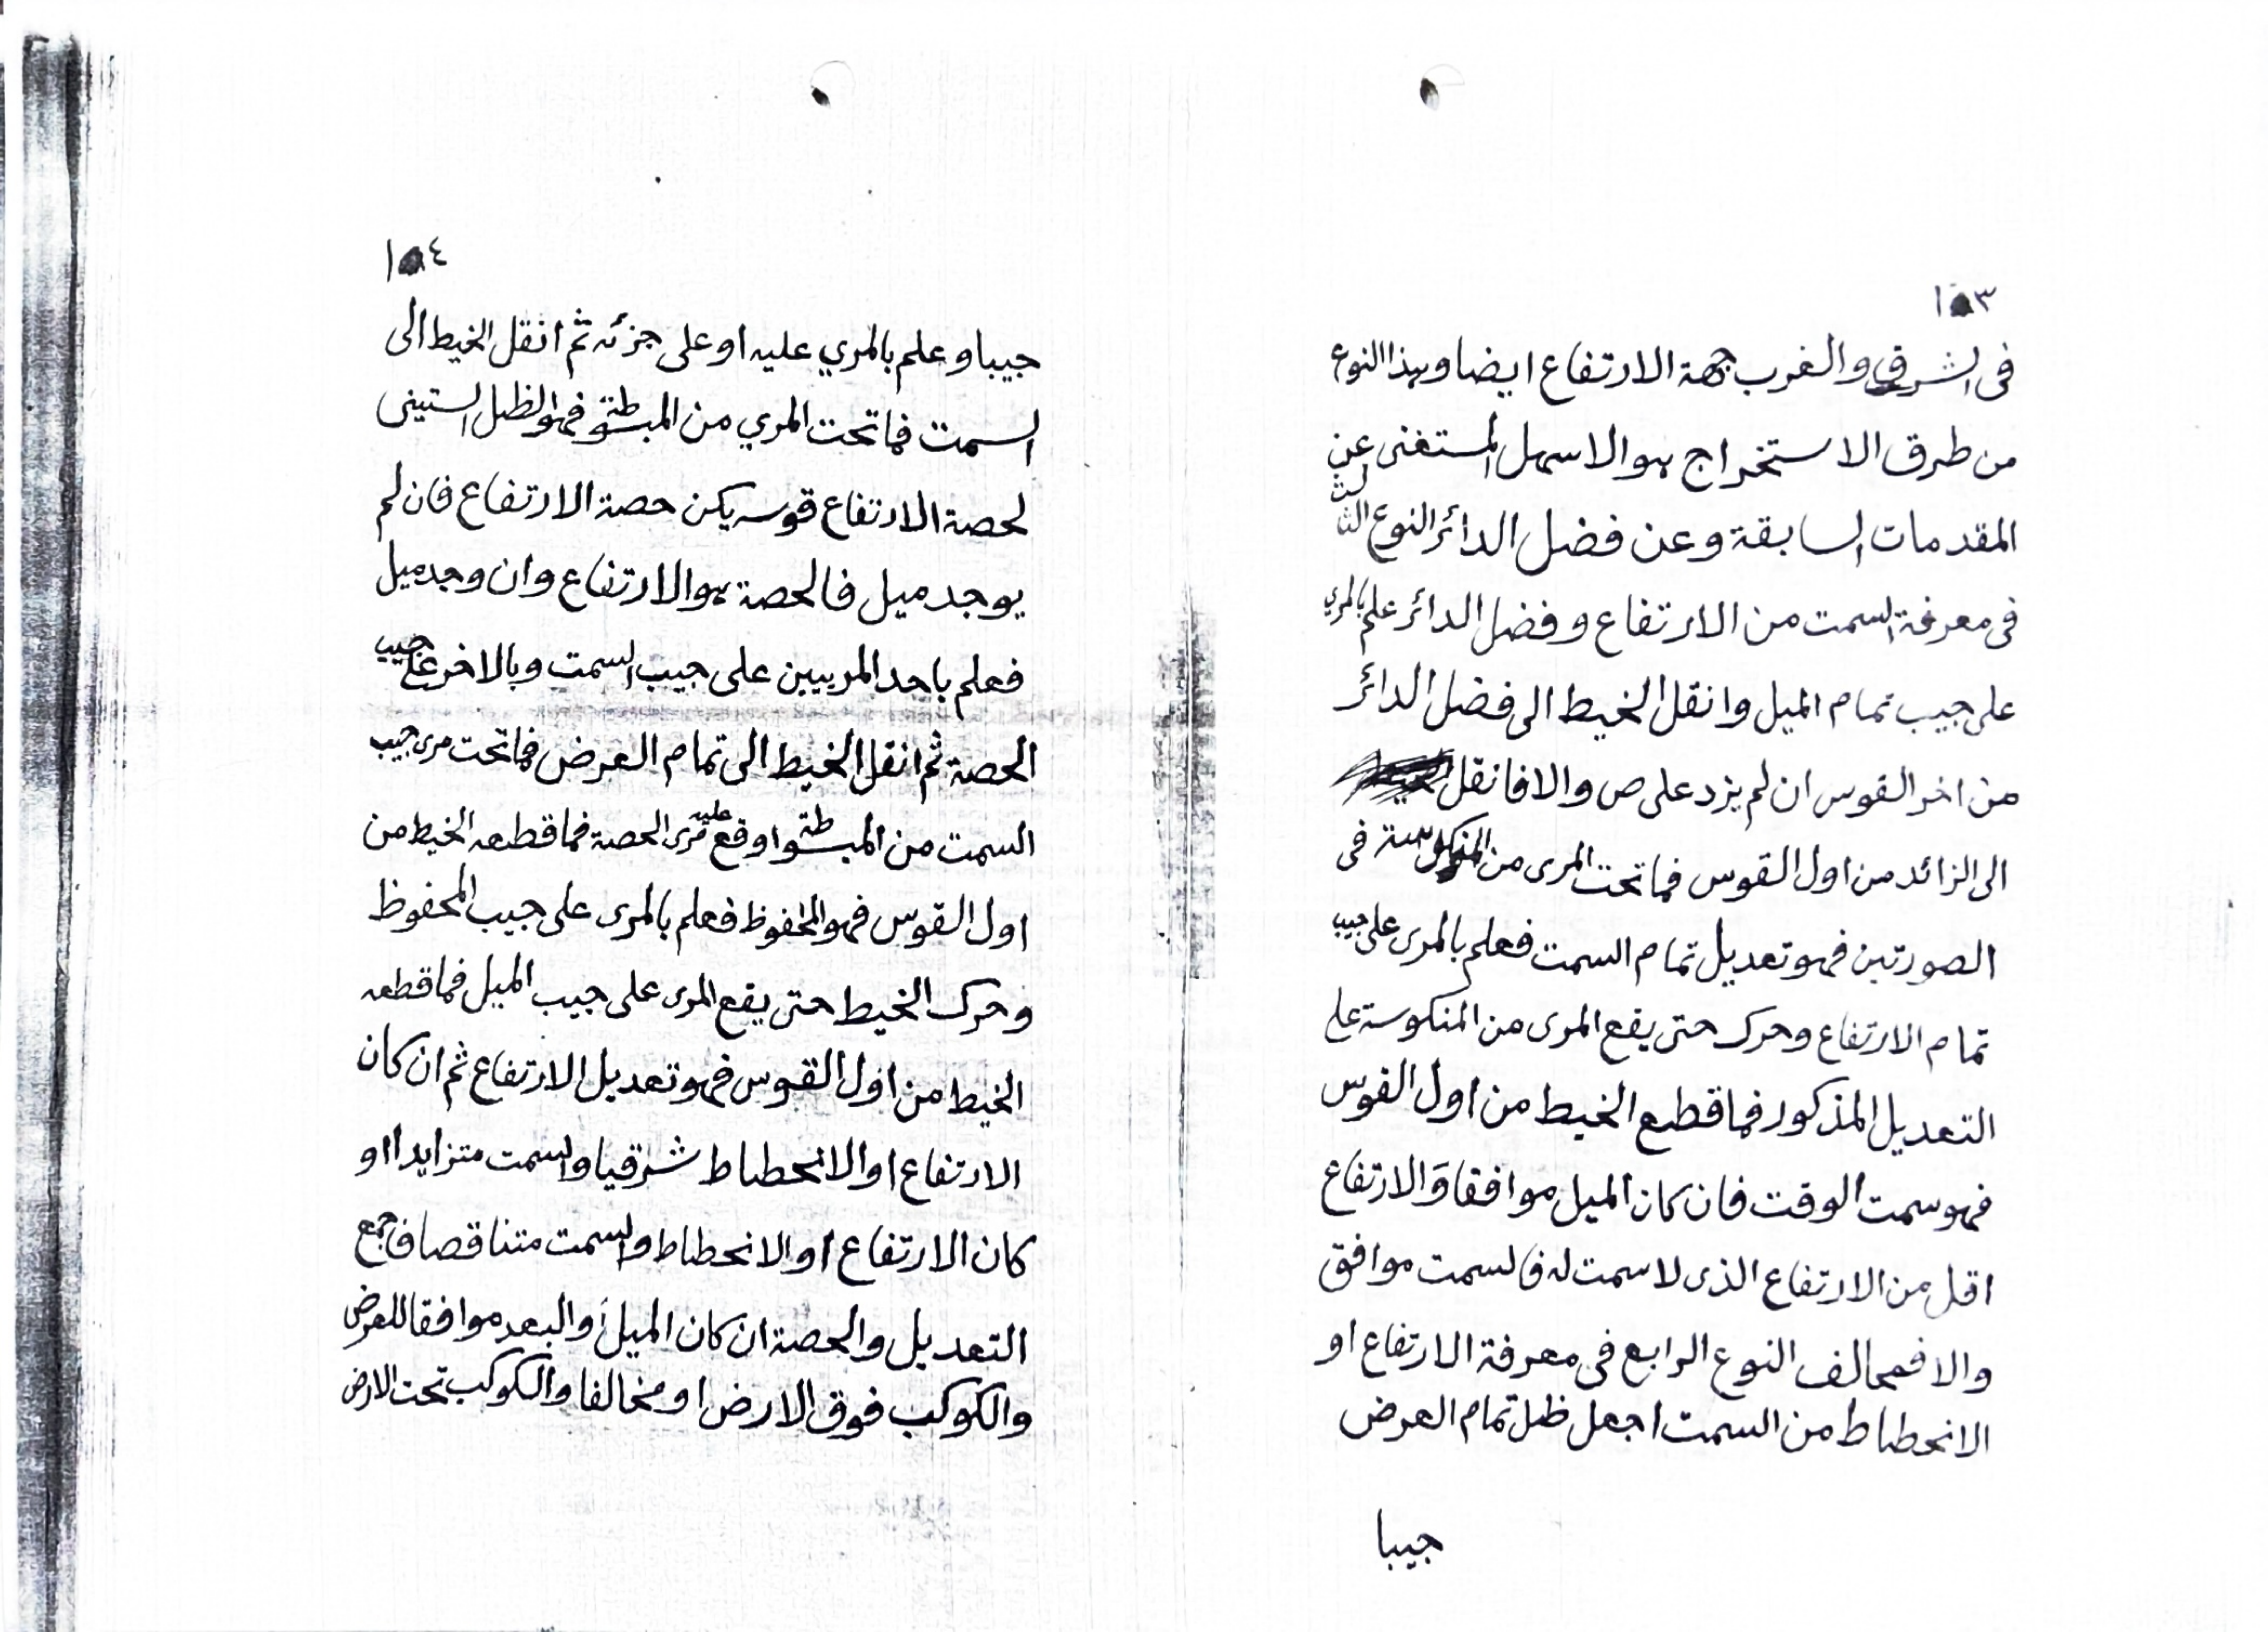 ١٥٣
فى الشرق والغرب جهة الارتفاع ايضا وبهذا النوع
من طرق الاستخراج هو الاسهل المستغنى عن
المقدمات السابقة وعن فضل الدائر النوع الثالث
فى معرفة السمت من الارتفاع وفضل الدائر علم بالمرى
على جيب تمام الميل وانقل الخيط الى فضل الدائر
من اخر القوس ان لم يزد على ص والا فانقل
الى الزائد من اول القوس فما تحت المرى من المنكوسة فى
الصورتين فهو تعديل تمام السمت فعلم بالمرى على جيب
تمام الارتفاع وحرك حتى يقع المرى من المنكوسة على
التعديل المذكور فما قطع الخيط من اول القوس
فهو سمت الوقت فان كان الميل موافقا والارتفاع
اقل من الارتفاع الذى لا سمت له فالسمت موافق
والا فمخالف النوع الرابع فى معرفة الارتفاع او
الانحطاط من السمت اجعل ظل تمام العرض
جيبا
١٥٤
جيبا وعلم بالمري عليه او على جزئه ثم انقل الخيط الى
السمت فما تحت المري من المبسوطة فهو الظل الستينى
لحصة الارتفاع قوسه يكن حصة الارتفاع فان لم
يوجد ميل فالحصة هو الارتفاع وان وجد ميل
فعلم باحد المريين على جيب السمت وبالاخر على جيب
الحصة ثم انقل الخيط الى تمام العرض فما تحت مرى جيب
السمت من المبسوطة اوقع عليه مرى الحصة فما قطعه الخيط من
اول القوس فهو المحفوظ فعلم بالمرى على جيب المحفوظ
وحرك الخيط حتى يقع المرى على جيب الميل فما قطعه
الخيط من اول القوس فهو تعديل الارتفاع ثم ان كان
الارتفاع او الانحطاط شرقيا والسمت متزايدا او
كان الارتفاع او الانحطاط والسمت متناقصا فاجمع
التعديل والحصة ان كان الميل أو البعد موافقا للعرض
والكوكب فوق الارض او مخالفا والكوكب تحت الارض